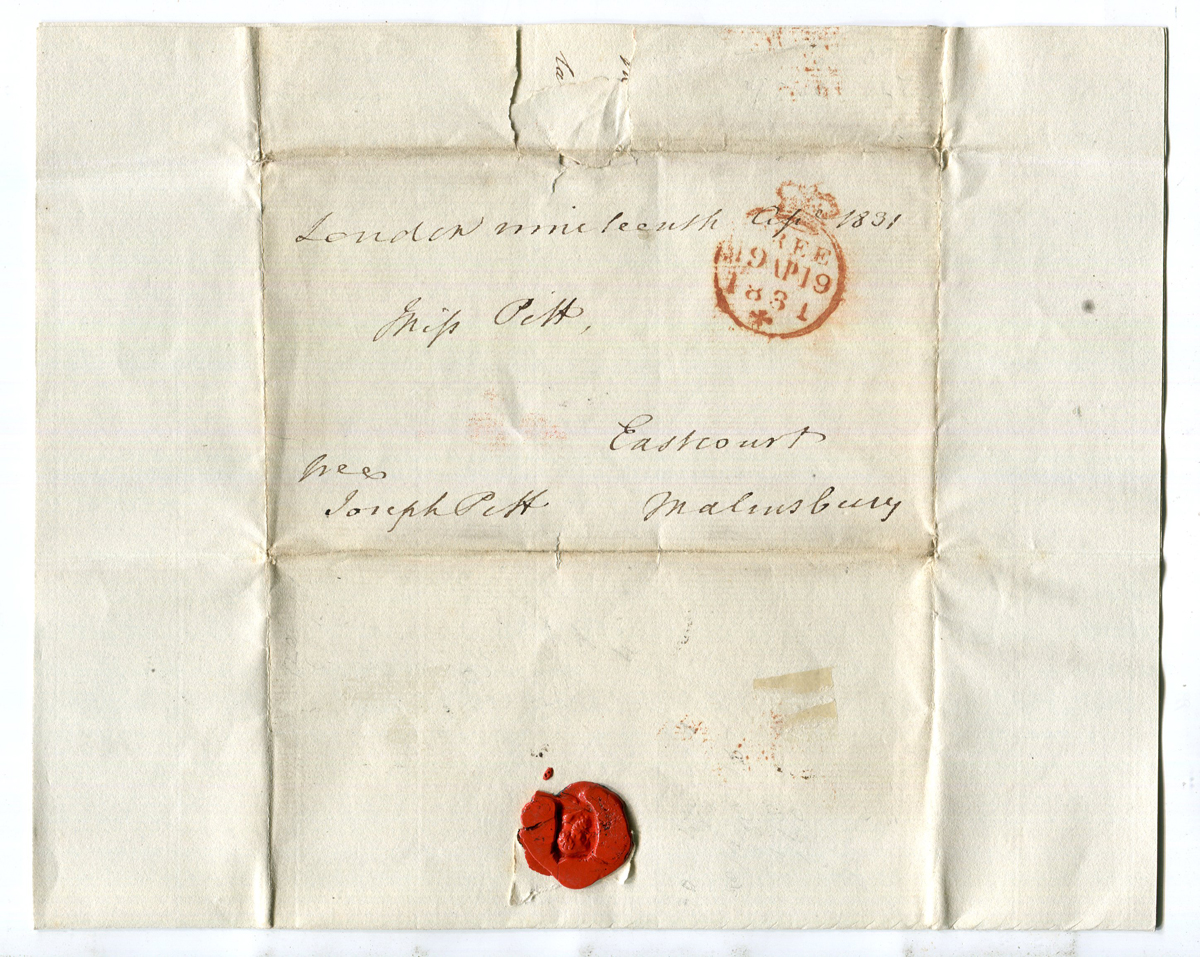 London nineteenth Apl 1831
FREE
19 AP 19
1831
Miss Pitt,
Eastcourt
free
Joseph Pitt Malmsbury